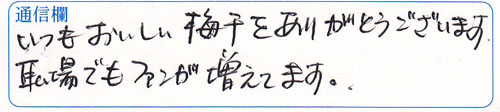 通信欄
いつもおいしい梅干をありがとうございます。
職場でもファンが増えてます。